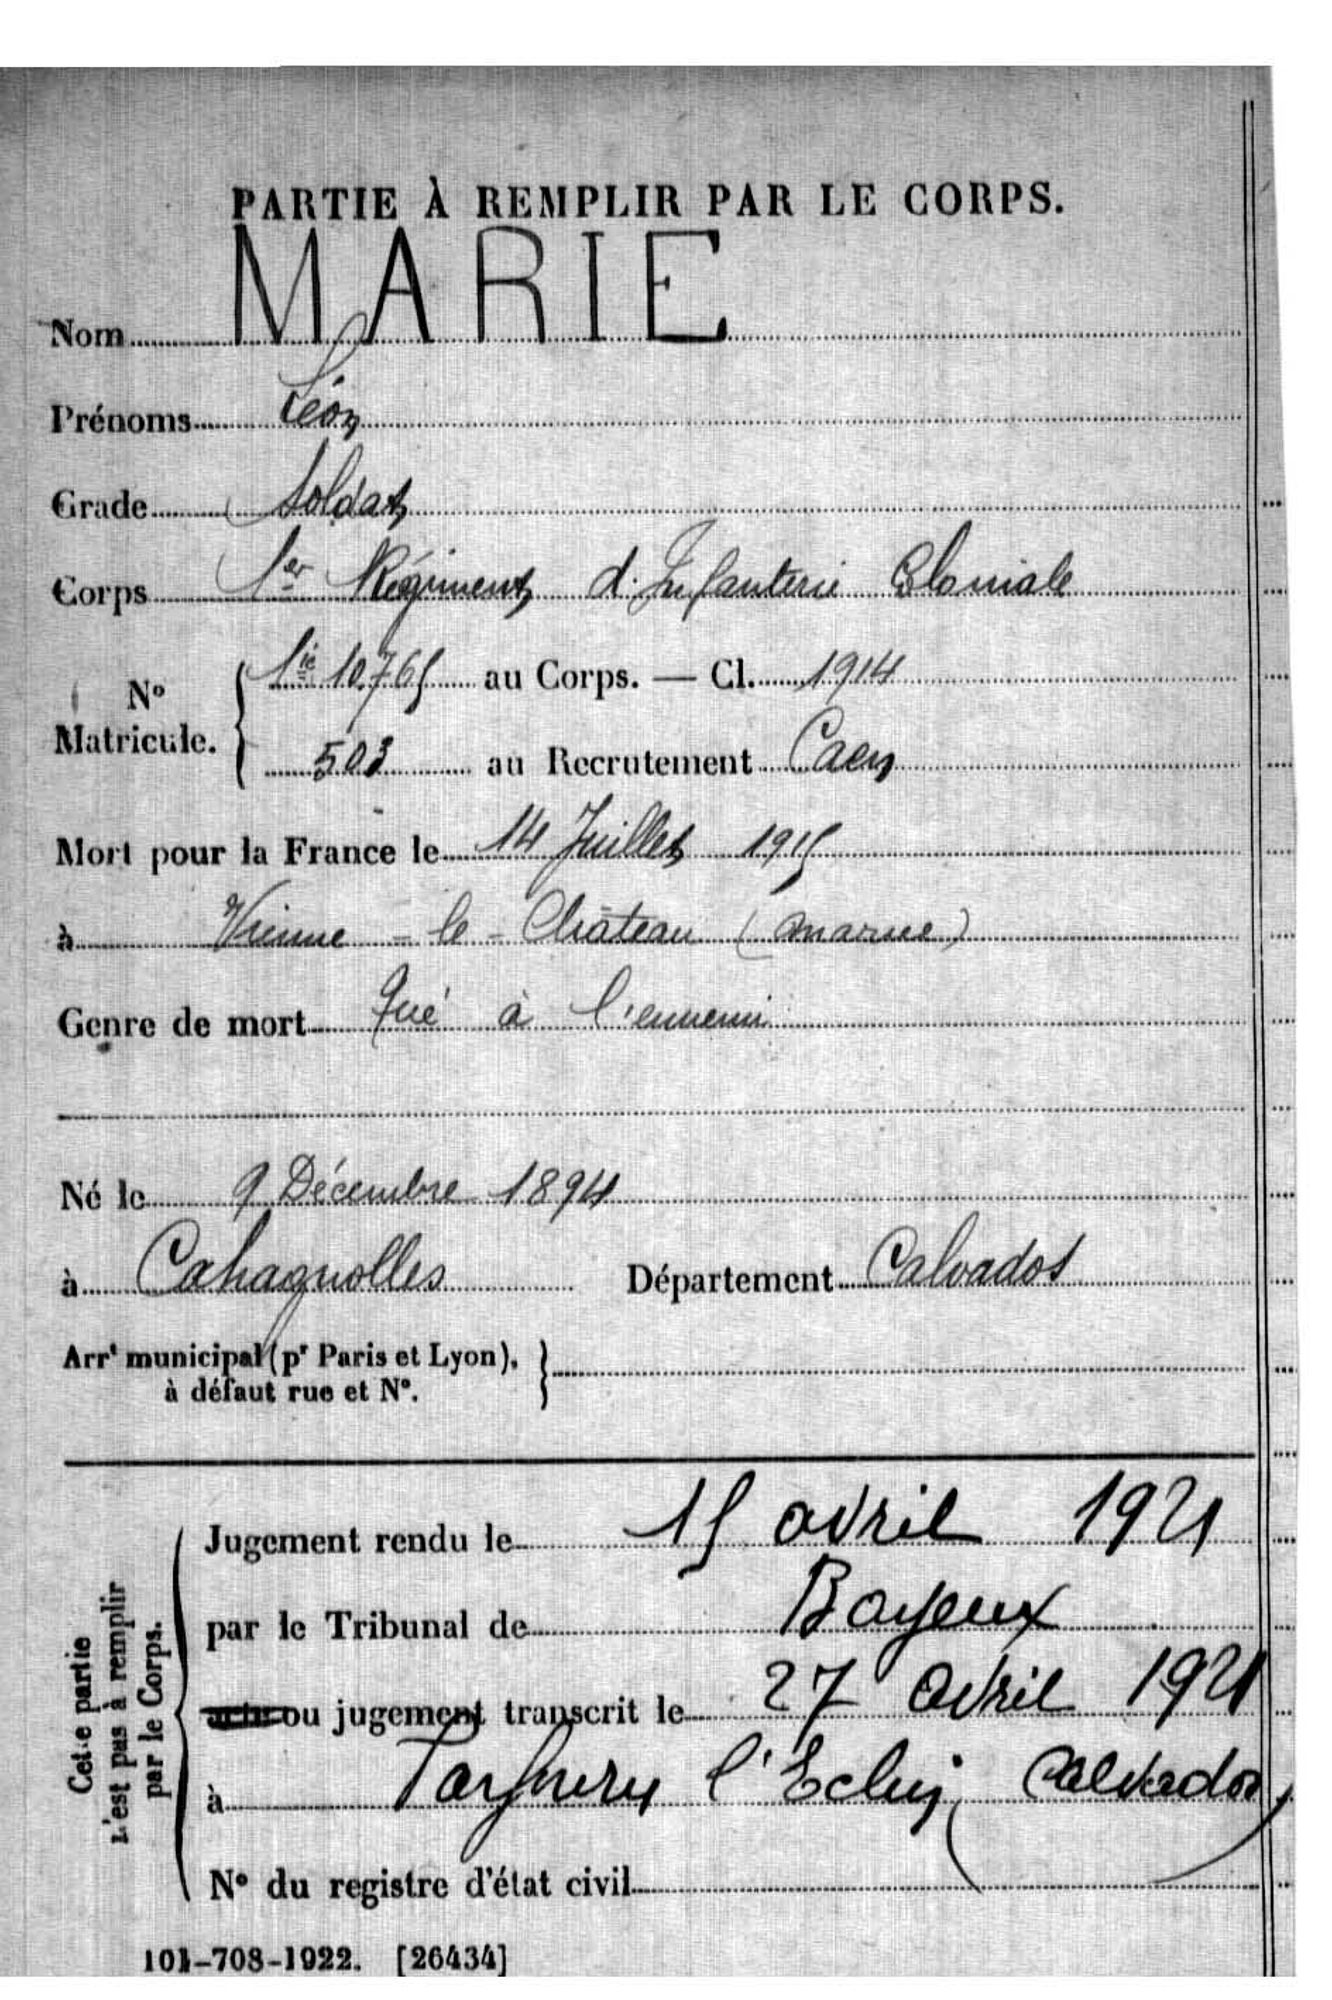 PARTIE À REMPLIR PAR LE CORPS.
Nom MARIE
Prénoms Léon
Grade Soldat
Corps 1er Régiment d'Infanterie Coloniale
No Matricule. 1ie 10.765 au Corps. — Cl. 1914
503 au Recrutement Caen
Mort pour la France le 14 Juillet 1915
à Vienne-le-Château (Marne)
Genre de mort Tué à l'ennemi
Né le 9 Décembre 1894
à Cahagnolles Département Calvados
Arrt municipal (pr Paris et Lyon),
à défaut rue et No.
Cette partie
n'est pas à remplir
par le Corps.
Jugement rendu le 15 avril 1921
par le Tribunal de Bayeux
acte ou jugement transcrit le 27 avril 1921
à l'Ecluz (Calvados)
No du registre d'état civil
101-708-1922. [26434]